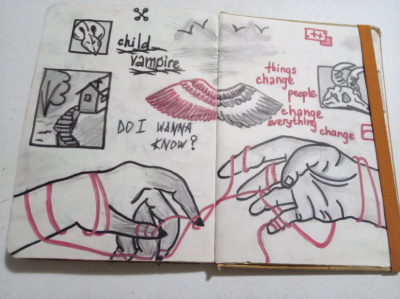 child
vampire
DO I WANNA
KNOW?
things
change
people
change
everything
change